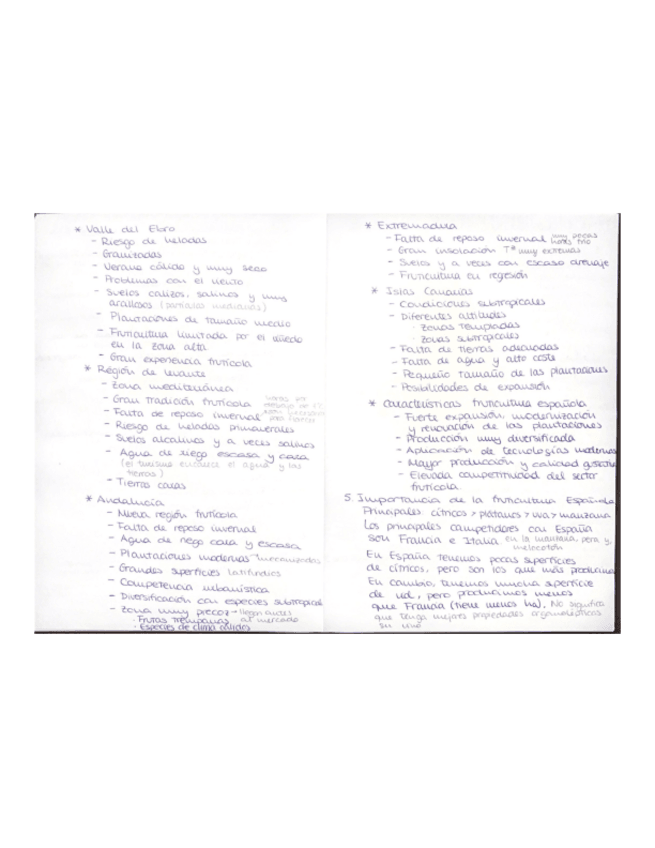 * Valle del Ebro
- Riesgo de heladas
- Granizadas
- Verano cálido y muy seco
- Problemas con el viento
- Suelos calizos, salinos y muy
arcillosos (partículas medianas)
- Plantaciones de tamaño medio
- Fruticultura limitada por el viñedo
en la zona alta
- Gran experiencia frutícola
* Región de levante
- Zona mediterránea
- Gran tradición frutícola
- Falta de reposo invernal
- Riesgo de heladas primaverales
- Suelos alcalinos y a veces salinos
- Agua de riego escasa y cara
(el turismo encarece el agua y las
tierras)
- Tierras caras
* Andalucía
- Nueva región frutícola
- Falta de reposo invernal
- Agua de riego cara y escasa
- Plantaciones modernas mecanizadas
- Grandes superficies latifundios
- Competencia urbanística
- Diversificación con especies subtropical
- Zona muy precoz → llegan antes
· Frutas tempranas al mercado
· Especies de clima cálidos
* Extremadura
- Falta de reposo invernal muy pocas
horas frío
- Gran insolación Tª muy extremas
- Suelos y a veces con escaso drenaje
- Fruticultura en regesión
* Islas Canarias
- Condiciones subtropicales
- Diferentes altitudes
· Zonas templadas
· Zonas subtropicales
- Falta de tierras adecuadas
- Falta de agua y alto coste
- Pequeño tamaño de las plantaciones
- Posibilidades de expansión
* Características fruticultura española
- Fuerte expansión, modernización
y renovación de las plantaciones
- Producción muy diversificada
- Aplicación de tecnologías modernas
- Mayor producción y calidad
- Elevada competitividad del sector
frutícola
5. Importancia de la fruticultura Española
Principales cítricos > plátanos > uva > manzana
Los principales competidores con España
son Francia e Italia. en la manzana, pera y
melocotón
En España tenemos pocas superficies
de cítricos, pero son los que más
En cambio, tenemos mucha superficie
de vid, pero producimos menos
que Francia (tiene menos ha). No significa
que tenga mejores propiedades organolépticas
su vino